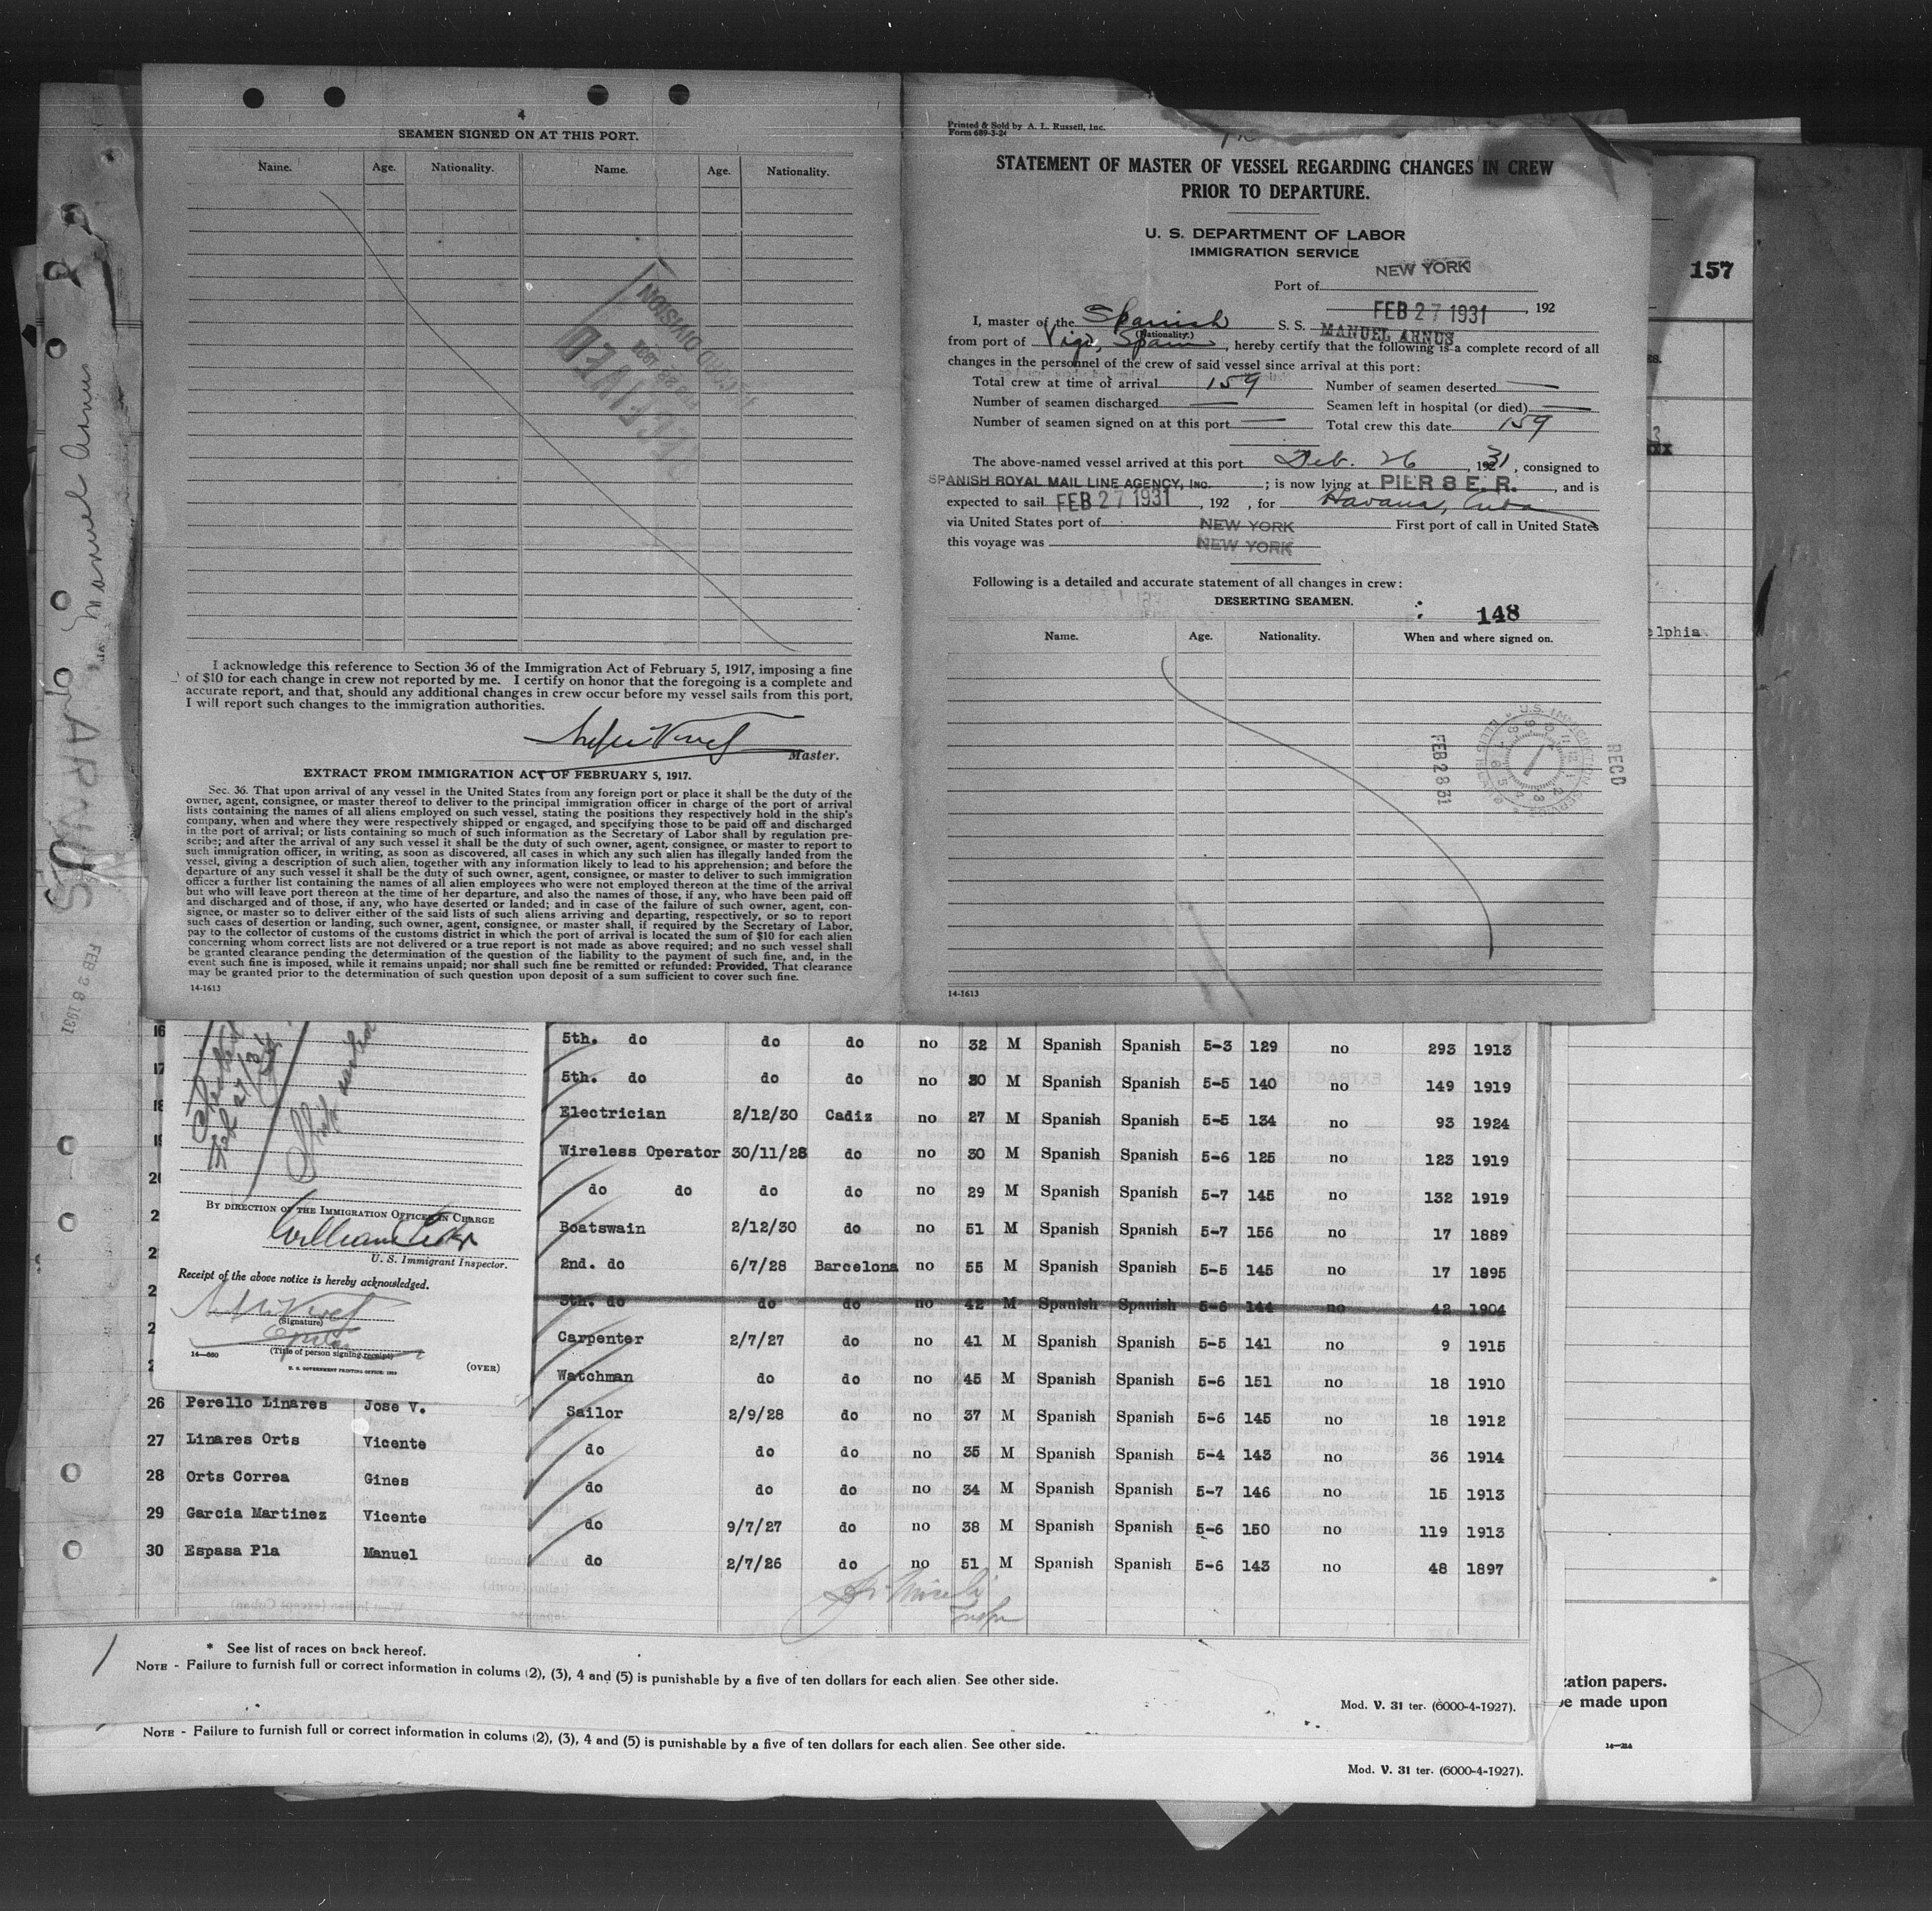 4
SEAMEN SIGNED ON AT THIS PORT.
Name. Age. Nationality. Name. Age. Nationality.
RECEIVED
RECORD DIVISION
I acknowledge this reference to Section 36 of the Immigration Act of February 5, 1917, imposing a fine
of $10 for each change in crew not reported by me. I certify on honor that the foregoing is a complete and
accurate report, and that, should any additional changes in crew occur before my vessel sails from this port,
I will report such changes to the immigration authorities.
Master.
EXTRACT FROM IMMIGRATION ACT OF FEBRUARY 5, 1917.
Sec. 36. That upon arrival of any vessel in the United States from any foreign port or place it shall be the duty of the
owner, agent, consignee, or master thereof to deliver to the principal immigration officer in charge of the port of arrival
lists containing the names of all aliens employed on such vessel, stating the positions they respectively hold in the ship's
company, when and where they were respectively shipped or engaged, and specifying those to be paid off and discharged
in the port of arrival; or lists containing so much of such information as the Secretary of Labor shall by regulation pre-
scribe; and after the arrival of any such vessel it shall be the duty of such owner, agent, consignee, or master to report to
such immigration officer, in writing, as soon as discovered, all cases in which any such alien has illegally landed from the
vessel, giving a description of such alien, together with any information likely to lead to his apprehension; and before the
departure of any such vessel it shall be the duty of such owner, agent, consignee, or master to deliver to such immigration
officer a further list containing the names of all alien employees who were not employed thereon at the time of the arrival
but who will leave port thereon at the time of her departure, and also the names of those, if any, who have been paid off
and discharged and of those, if any, who have deserted or landed; and in case of the failure of such owner, agent, con-
signee, or master so to deliver either of the said lists of such aliens arriving and departing, respectively, or so to report
such cases of desertion or landing, such owner, agent, consignee, or master shall, if required by the Secretary of Labor,
pay to the collector of customs of the customs district in which the port of arrival is located the sum of $10 for each alien
concerning whom correct lists are not delivered or a true report is not made as above required; and no such vessel shall
be granted clearance pending the determination of the question of the liability to the payment of such fine, and, in the
event such fine is imposed, while it remains unpaid; nor shall such fine be remitted or refunded: Provided, That clearance
may be granted prior to the determination of such question upon deposit of a sum sufficient to cover such fine.
14-1613
Printed & Sold by A. L. Russell, Inc.
Form 689-3-24
STATEMENT OF MASTER OF VESSEL REGARDING CHANGES IN CREW
PRIOR TO DEPARTURE.
U. S. DEPARTMENT OF LABOR
IMMIGRATION SERVICE
Port of NEW YORK
FEB 27 1931, 192
I, master of the Spanish S. S. MANUEL ARNUS
(Nationality.)
from port of Vigo, Spain, hereby certify that the following is a complete record of all
changes in the personnel of the crew of said vessel since arrival at this port:
Total crew at time of arrival 159 Number of seamen deserted —
Number of seamen discharged — Seamen left in hospital (or died) —
Number of seamen signed on at this port — Total crew this date 159
The above-named vessel arrived at this port Feb. 26, 1931, consigned to
SPANISH ROYAL MAIL LINE AGENCY, INC.; is now lying at PIER 8 E. R., and is
expected to sail FEB 27 1931, 192 , for Havana, Cuba
via United States port of NEW YORK First port of call in United States
this voyage was NEW YORK
Following is a detailed and accurate statement of all changes in crew:
DESERTING SEAMEN.
148
Name. Age. Nationality. When and where signed on.
FEB 28 31
RECD
14-1613
157
elphia
Manuel Arnus
ARNUS
FEB 28 1931
16 5th. do do do no 32 M Spanish Spanish 5-3 129 no 293 1913
17 5th. do do do no 30 M Spanish Spanish 5-5 140 no 149 1919
18 Electrician 2/12/30 Cadiz no 27 M Spanish Spanish 5-5 134 no 93 1924
Wireless Operator 30/11/28 do no 30 M Spanish Spanish 5-6 125 no 123 1919
do do do do no 29 M Spanish Spanish 5-7 145 no 132 1919
Boatswain 2/12/30 do no 51 M Spanish Spanish 5-7 156 no 17 1889
2nd. do 6/7/28 Barcelona no 55 M Spanish Spanish 5-5 145 no 17 1895
3th. do do do no 42 M Spanish Spanish 5-6 144 no 42 1904
Carpenter 2/7/27 do no 41 M Spanish Spanish 5-5 141 no 9 1915
Watchman do do no 45 M Spanish Spanish 5-6 151 no 18 1910
26 Perello Linares Jose V. Sailor 2/9/28 do no 37 M Spanish Spanish 5-6 145 no 18 1912
27 Linares Orts Vicente do do do no 35 M Spanish Spanish 5-4 143 no 36 1914
28 Orts Correa Gines do do do no 34 M Spanish Spanish 5-7 146 no 15 1913
29 Garcia Martinez Vicente do 9/7/27 do no 38 M Spanish Spanish 5-6 150 no 119 1913
30 Espasa Pla Manuel do 2/7/26 do no 51 M Spanish Spanish 5-6 143 no 48 1897
BY DIRECTION OF THE IMMIGRATION OFFICER IN CHARGE
William
U. S. Immigrant Inspector.
Receipt of the above notice is hereby acknowledged.
(Signature)
(Title of person signing receipt)
14—680
U. S. GOVERNMENT PRINTING OFFICE: 1929
(OVER)
* See list of races on back hereof.
NOTE - Failure to furnish full or correct information in colums (2), (3), 4 and (5) is punishable by a five of ten dollars for each alien. See other side.
Mod. V. 31 ter. (6000-4-1927).
NOTE - Failure to furnish full or correct information in colums (2), (3), 4 and (5) is punishable by a five of ten dollars for each alien. See other side.
Mod. V. 31 ter. (6000-4-1927).
zation papers.
be made upon